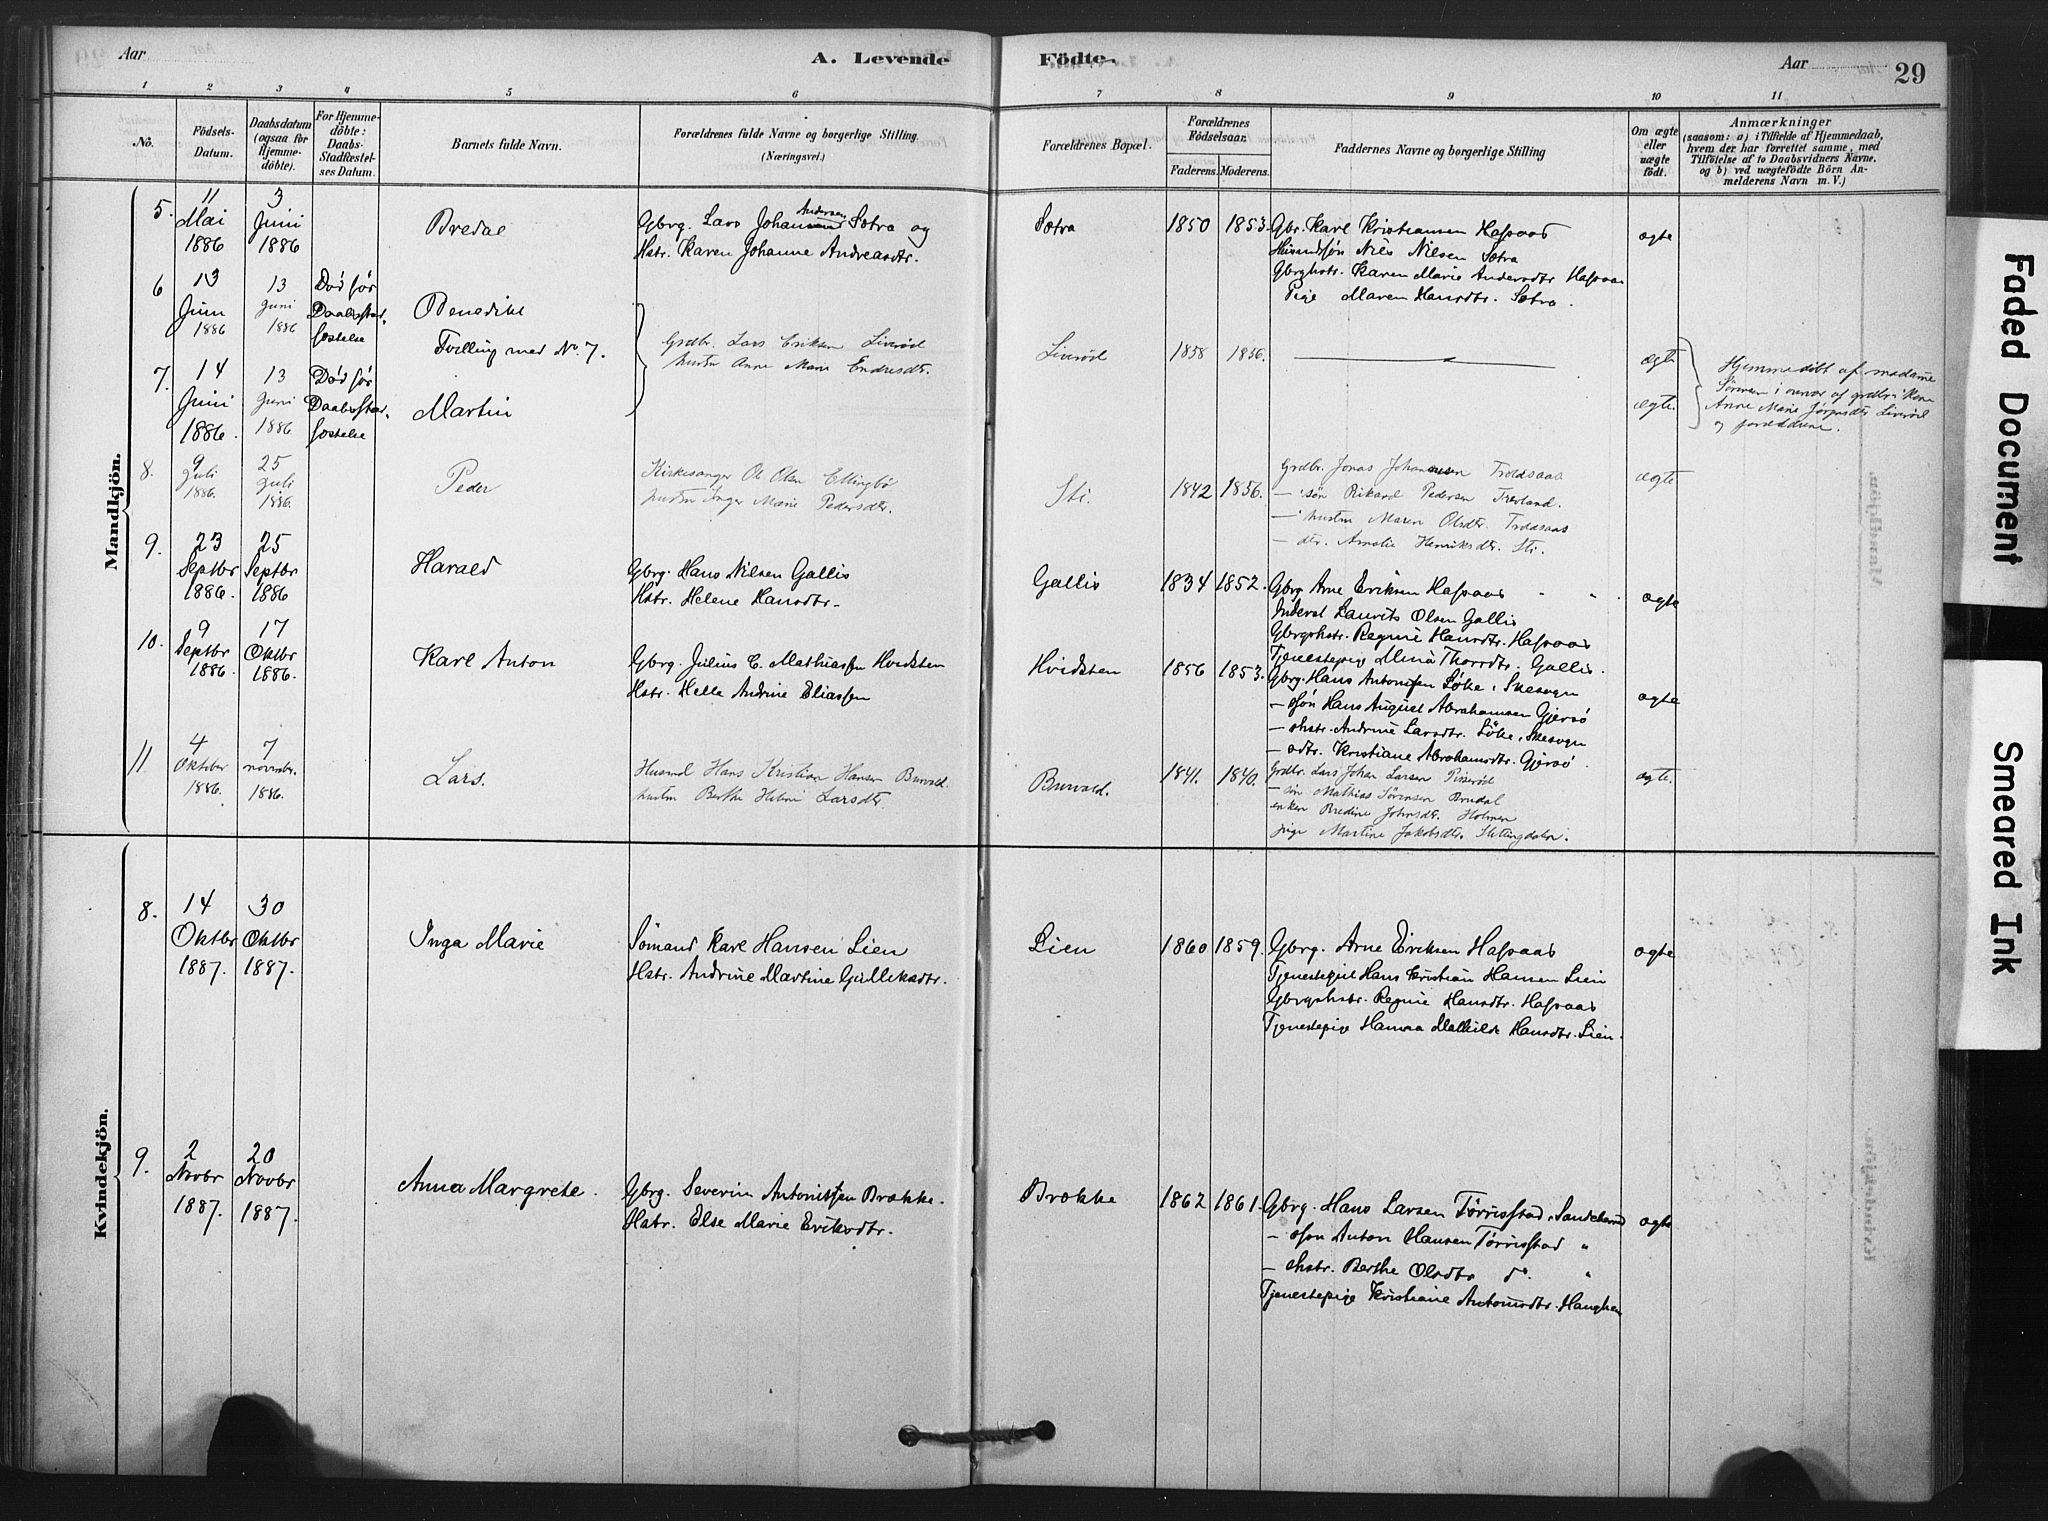 Aar
A. Levende
Födte.
Aar
29
1 2 3 4 5 6 7 8 9 10 11
No.
Födsels-Datum.
Daabsdatum (ogsaa for Hjemme-döbte).
For Hjemme-döbte: Daabs-Stadfæstel-ses Datum.
Barnets fulde Navn.
Forældrenes fulde Navne og borgerlige Stilling.
(Næringsvei.)
Forældrenes Bopæl.
Forældrenes Födselsaar.
Faderens. Moderens.
Faddernes Navne og borgerlige Stilling
Om ægte eller uægte födt.
Anmærkninger
(saasom: a) i Tilfælde af Hjemmedaab,
hvem der har forrettet samme, med
Tilföielse af to Daabsvidners Navne,
og b) ved uægtefödte Börn An-
melderens Navn m. V.)
Mandkjön.
5. 11 Mai 1886 3 Juni 1886 Bredal
Gbrg. Lars Johan Andersen Sætra og
Hstr. Karen Johanne Andreasdtr.
Sætra 1850 1853.
Gbr. Karl Kristiansen Hafsaas
Husmdsøn Nils Nilsen Sætra
Gbrghstr. Karen Marie Andersdtr Hafsaas
Pige Maren Hansdtr. Sætra.
ægte
6 13 Juni 1886 13 Juni 1886 Død før Daabsstad.fæstelse
Benedikt
Tvilling med No. 7.
Grdbr. Lars Eriksen Liverød
hustru Anne Marie Endresdtr.
Liverød 1858 1856.
ægte
7. 14 Juni 1886. 13 Juni 1886 Død før Daabsstad.fæstelse
Martin
ægte.
Hjemmedöbt af madame
Sörensen i overvær af grdbr. kone
Anne Marie Jörgensdtr Liverød
og forældrene.
8. 9 Juli 1886. 25 Juli 1886. Peder
Kirkesanger Ol Olsen Ellingbö
hustru Inger Marie Pedersdtr.
Sti. 1842 1856.
Grdbr. Jonas Johansen Troldsaas
— søn Rikard Pedersen Trevland.
— hustru Maren Olsdtr. Troldsaas
— dtr. Amalie Henriksdtr. Sti.
ægte
9. 23 Septbr 1886. 25 Septbr 1886 Harald
Gbrg. Hans Nilsen Gallis
Hstr. Helene Hansdtr.
Gallis 1834 1852.
Gbrg Arne Eriksen Hafsaas
Inderst Laurits Olsen Gallis
Gbrgshstr. Regine Hansdtr. Hafsaas
Tjenestepig Mina Thorsdtr. Gallis.
ægte
10. 9 Septbr 1886. 17 Oktbr 1886. Karl Anton
Gbrg. Julius C. Mathiassen Hvidsten
Hstr. Helle Andrine Eliassen
Hvidsten 1856 1853.
Gbrg. Hans Antonsen Løke, Skesogn
— søn Hans August Abrahamsen Gjersø
— shstr. Andrine Larsdtr. Løke, Skesogn
— sdtr. Kristiane Abrahamsdtr. Gjersø.
ægte
11 4 Oktober 1886. 7 november. 1886. Lars.
Husmd Hans Kristian Hansen Buvald.
hustru Berthe Helene Larsdtr.
Buvald. 1841. 1840.
Grdbr. Lars Johan Larsen Pisserød
— søn Mathias Sørensen Brudal
enken Bredine Johnsdtr. Holmen
pige Martine Jakobsdtr.
ægte.
Kvindekjön.
8. 14 Oktbr 1887. 30 Oktbr 1887. Inga Marie
Sømand Karl Hansen Lien
Hstr. Andrine Martine Gulliksdtr.
Lien 1860 1859.
Gbrg. Arne Eriksen Hafsaas
Tjenestegut Hans Kristian Hansen Lien
Gbrgshstr. Regine Hansdtr. Hafsaas
Tjenestepige Hanna Mathilde Hansdtr. Lien.
ægte
9. 2 Novbr 1887. 20 Novbr 1887. Anna Margrete.
Gbrg. Severin Antonissen Brække.
Hstr. Else Marie Eriksdtr.
Brække 1862 1861.
Gbrg. Hans Larsen Tørrisstad, Sandeherred
— sson Anton Hansen Tørrisstad "
— shstr. Berthe Olsdtr do. "
Tjenestepige Kristiane Antonsdtr. Haughem
ægte
Faded Document
Smeared Ink